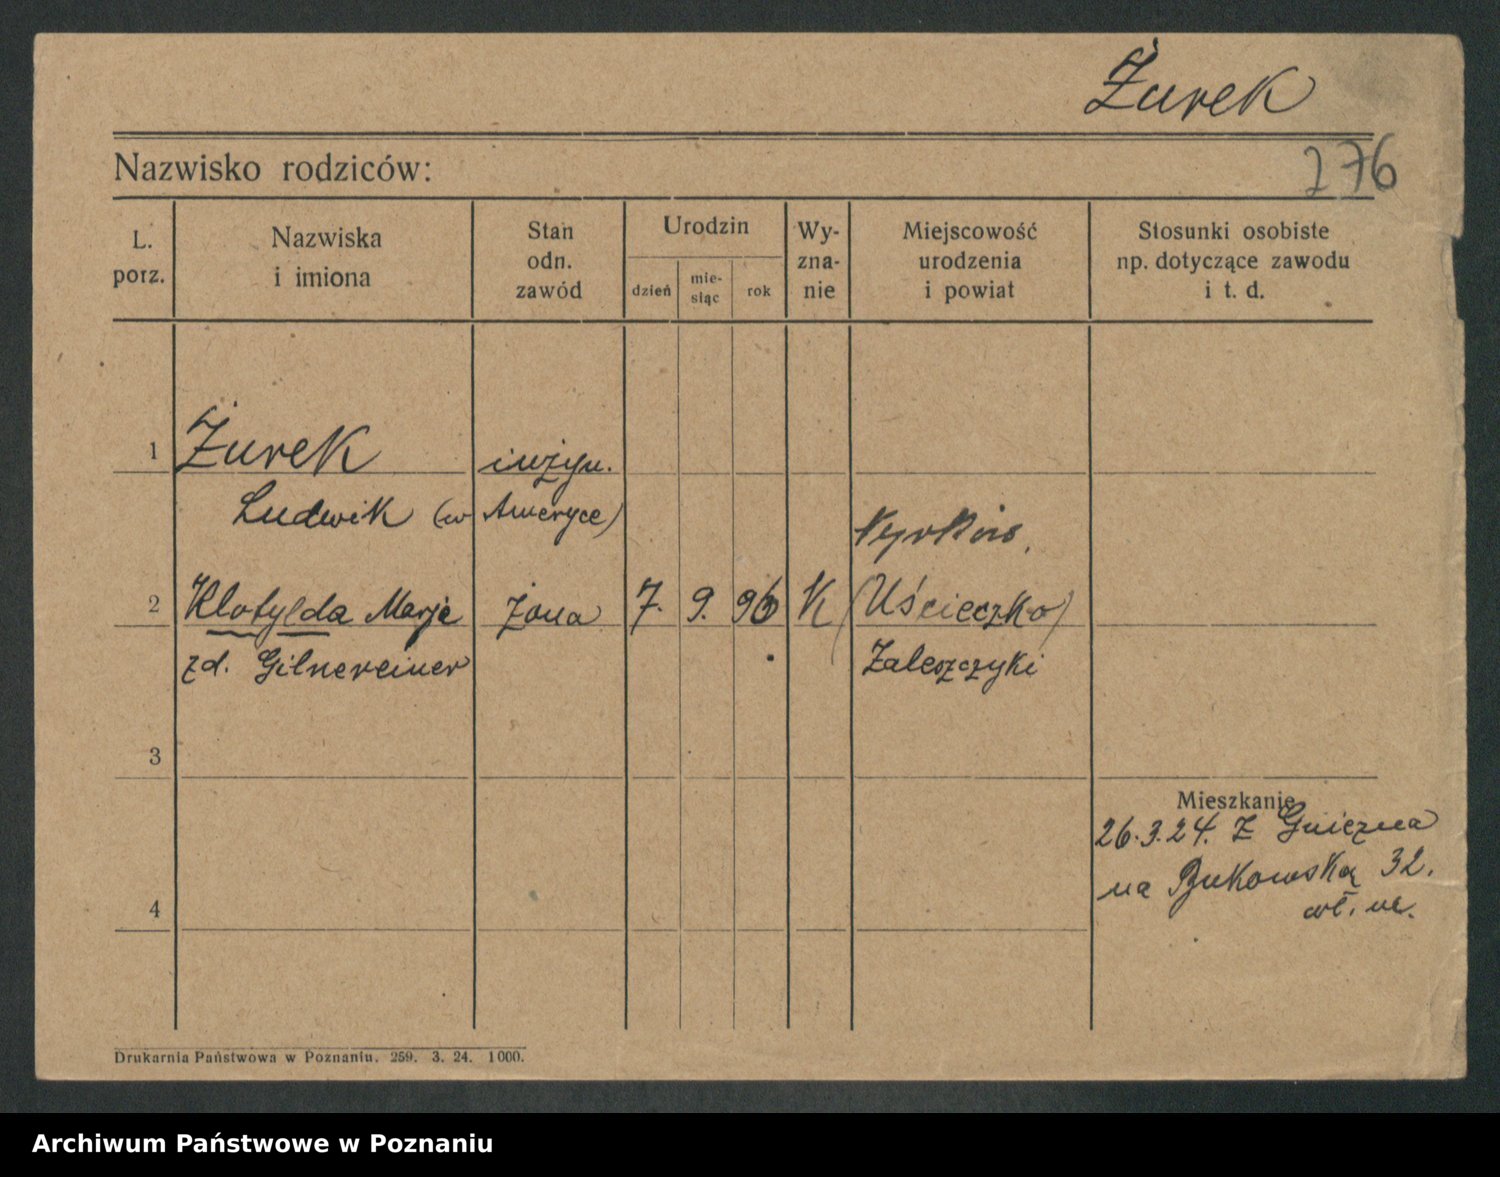 Żurek
Nazwisko rodziców:
276
L. porz.
Nazwiska i imiona
Stan odn. zawód
Urodzin
dzień
mie-siąc
rok
Wy-zna-nie
Miejscowość urodzenia i powiat
Stosunki osobiste np. dotyczące zawodu i t. d.
1 Żurek inżyn.
Ludwik (w Ameryce)
2 Klotylda Marja żona 7. 9. 96 K (Uścieczko)
zd. Zaleszczyki
3
Mieszkanie
26.3.24. Z Gniezna
na Bukowską 32.
4
Drukarnia Państwowa w Poznaniu. 259. 3. 24. 1000.
Archiwum Państwowe w Poznaniu